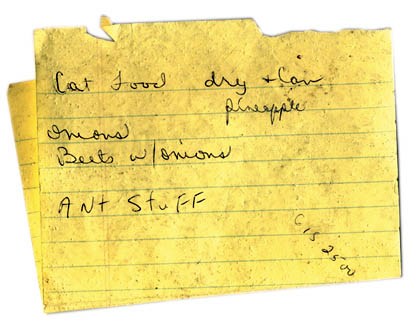 Cat Food dry + Can
pineapple
onions
Beets w/onions
ANt StuFF